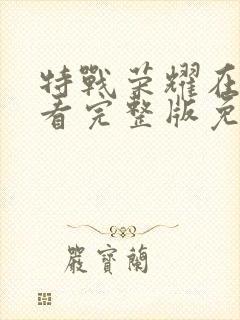 特戰荣耀在
看完整版免
嚴寳蘭